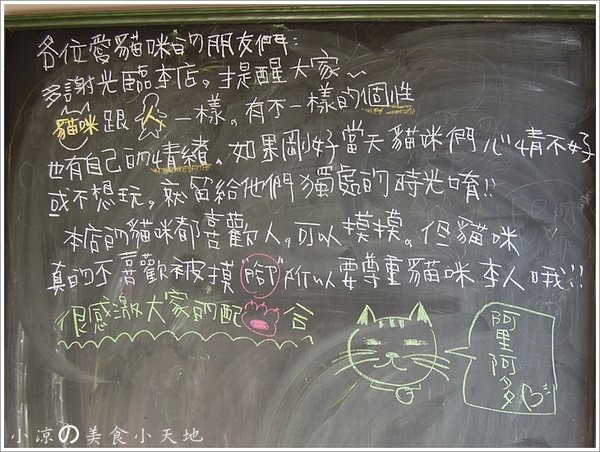 各位愛貓咪的朋友們:
多謝光臨本店。提醒大家~
貓咪跟人一樣。有不一樣的個性
也有自己的情緒。如果剛好當天貓咪們心情不好
或不想玩。就留給他們獨處的時光唷!!
本店的貓咪都喜歡人。可以摸摸。但貓咪
真的不喜歡被摸"腳"所以要尊重貓咪本人哦!!
很感激大家的配合
阿里阿多
小涼の美食小天地